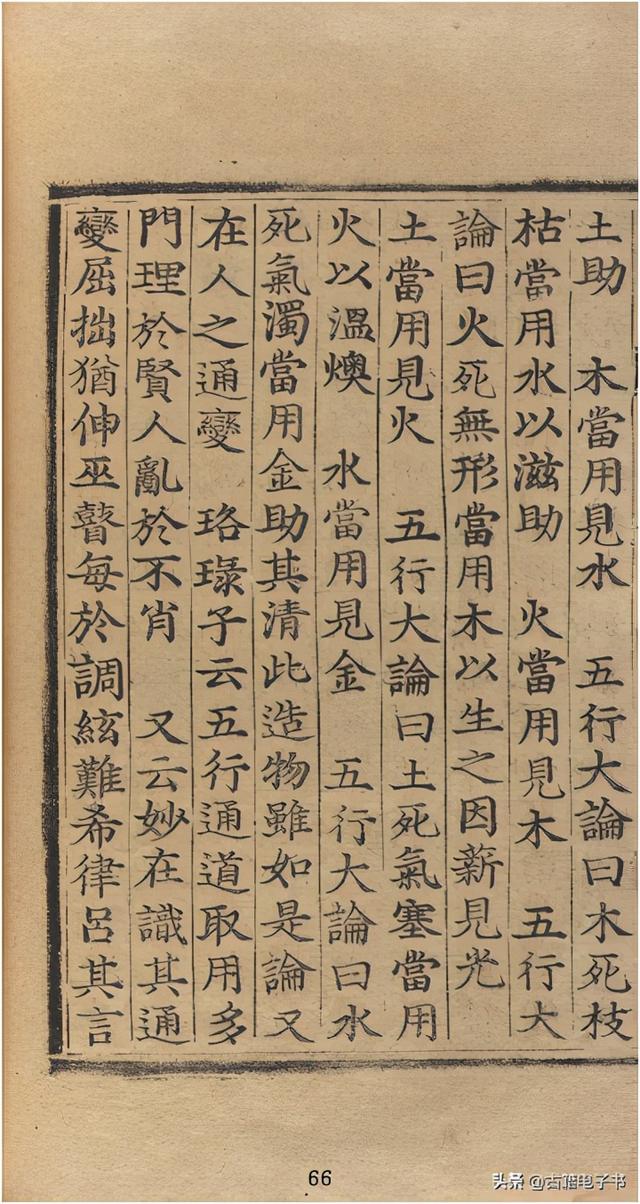 土助　木當用見水　五行大論曰木死枝
枯當用水以滋助　火當用見木　五行大
論曰火死無形當用木以生之因薪見光
土當用見火　五行大論曰土死氣塞當用
火以溫燠　水當用見金　五行大論曰水
死氣濁當用金助其清此造物雖如是論又
在人之通變　珞琭子云五行通道取用多
門理於賢人亂於不肖　又云妙在識其通
變屈拙猶伸巫瞽每於調絃難希律呂其言
66
头条 @古籍电子书